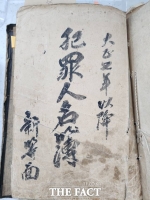 大正五年以降
犯罪人名簿
新等面
THE FACT